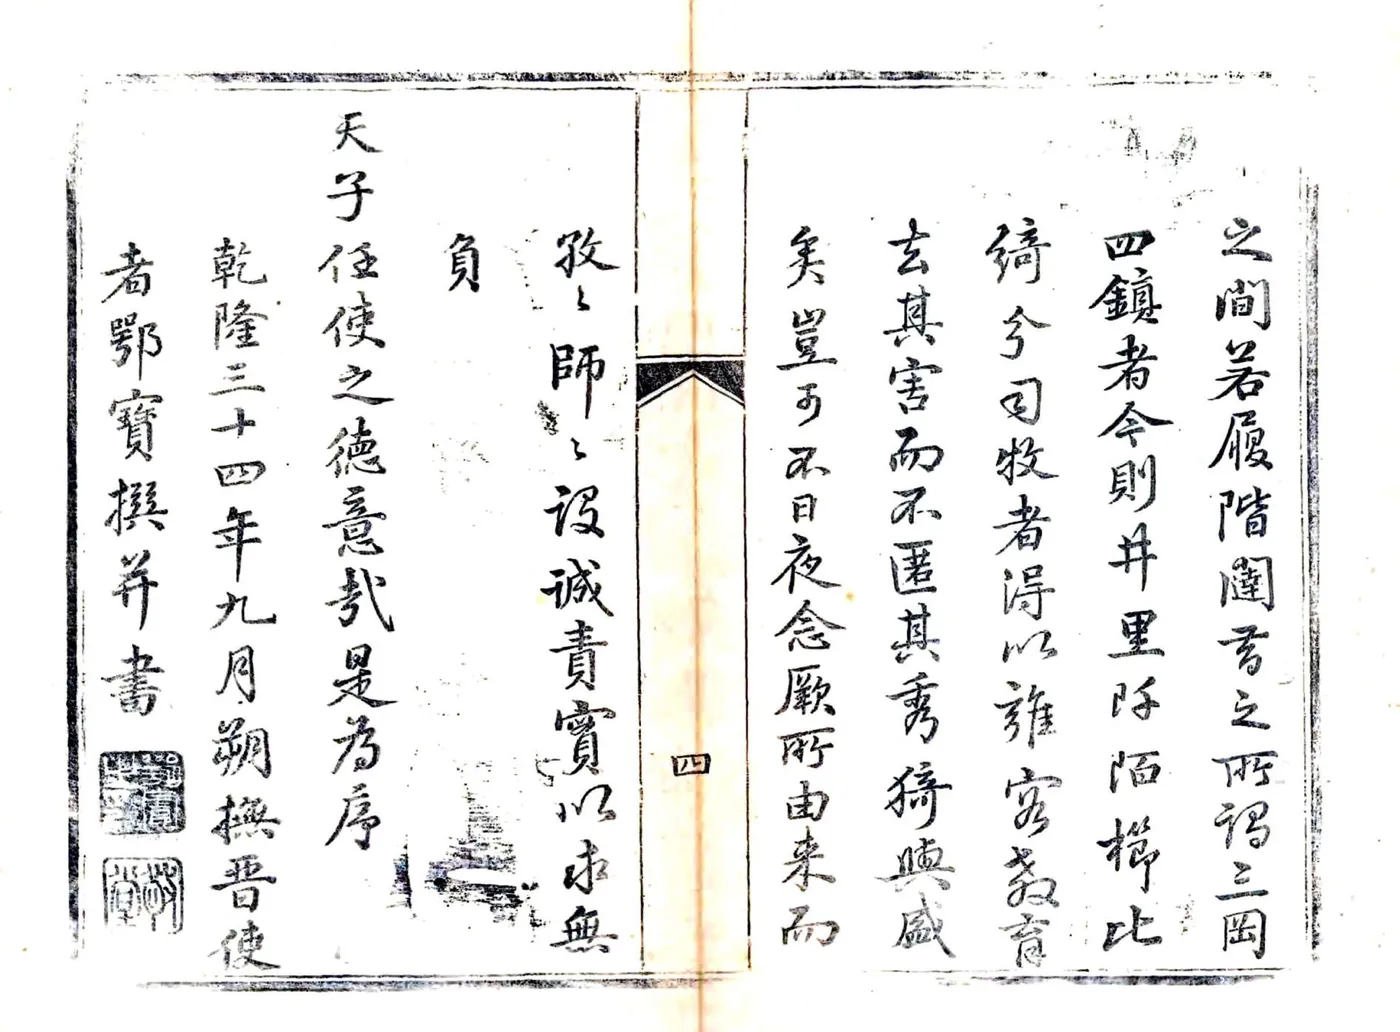 之間若履階闥昔之所謂三岡
四鎮者今則井里阡陌櫛比
綺分司牧者得以雍容教育
去其害而不匿其秀猗歟盛
矣豈可不日夜念厥所由来而
孜〻師〻設誠責實以求無
負
天子任使之德意哉是為序
乾隆三十四年九月朔撫晋使
者鄂寶撰并書
四